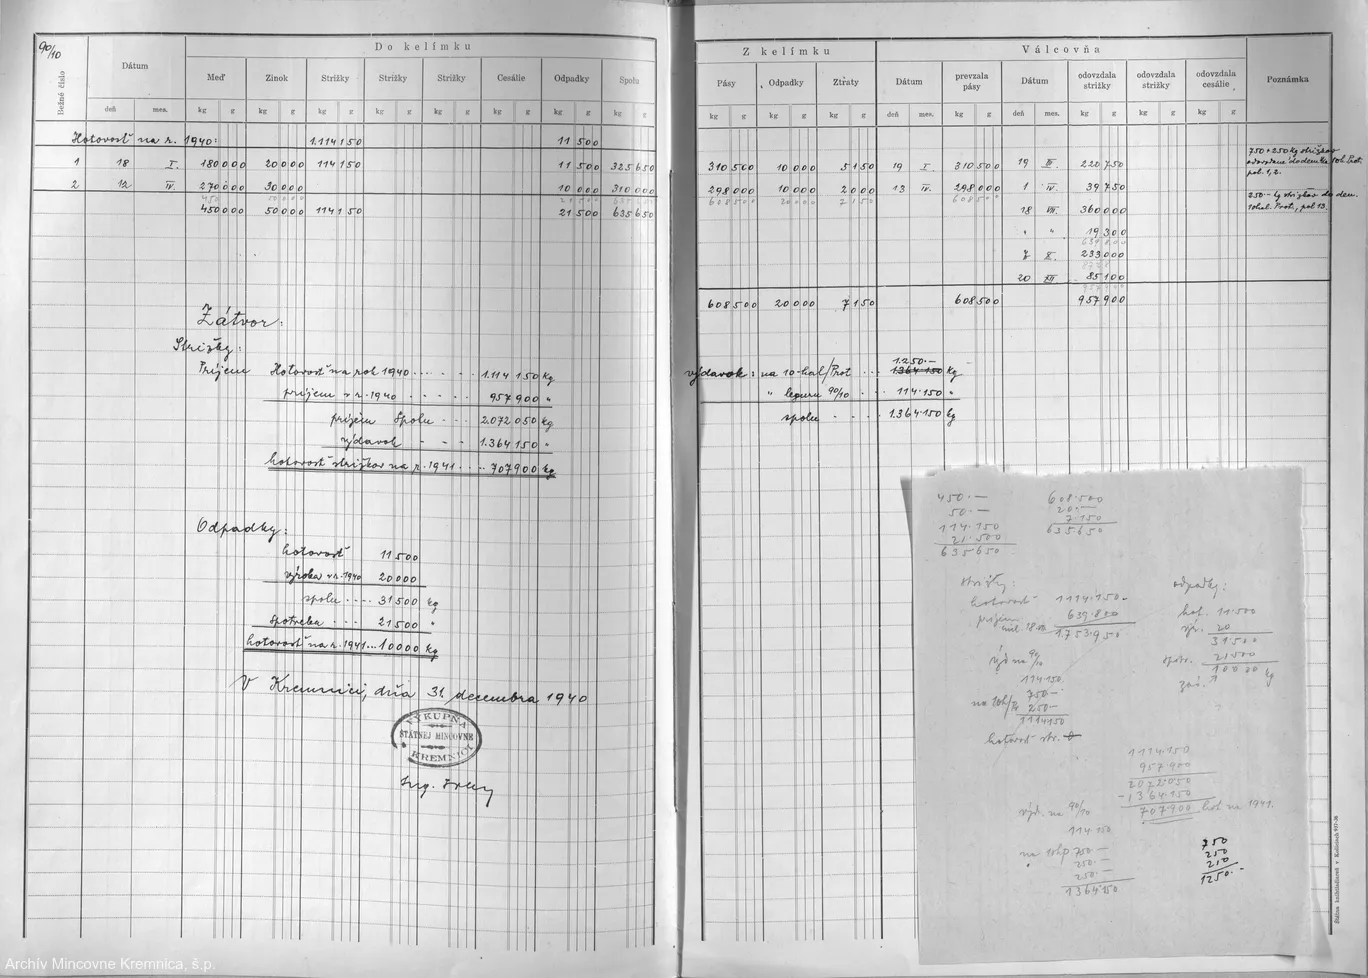 90/10
Do kelímku
Bežné číslo
Dátum
Meď Zinok Strižky Strižky Strižky Cesálie Odpadky Spolu
deň mes. kg g kg g kg g kg g kg g kg g kg g kg g
Hotovosť na r. 1940: 1.114 150 11 500
1 18 I. 180 000 20 000 114 150 11 500 325 650
2 12 IV. 270 000 30 000 10 000 310 000
450 000 50 000 114 150 21 500 635 650
Zátvor:
Strižky:
Príjem Hotovosť na rok 1940 1.114 150 kg
príjem v r. 1940 957 900 "
príjem Spolu 2.072 050 kg
výdavok 1.364 150 "
hotovosť strižkov na r. 1941 707 900 kg
Odpadky:
hotovosť 11 500
výroba v r. 1940 20 000
spolu 31 500 kg
spotreba 21 500 "
hotovosť na r. 1941 10 000 kg
V Kremnici, dňa 31. decembra 1940
VÝKUPŇA
ŠTÁTNEJ MINCOVNE
KREMNICI
Ing.
Z kelímku Válcovňa
Pásy Odpadky Ztraty Dátum prevzala pásy Dátum odovzdala strižky odovzdala strižky odovzdala cesálie Poznámka
kg g kg g kg g deň mes. kg g deň mes. kg g kg g kg g
310 500 10 000 5 150 19 I. 310 500 19 220 750
750 + 250 kg strižkov
pol. 1, 2.
298 000 10 000 2 000 13 IV. 298 000 1 IV. 39 750
608 500 20 000 7 150 608 500
250.- kg strižkov do den.
10 hal. Prot., pol 13.
18 VII. 360 000
" " 19 300
639 800
7 X. 233 000
20 XII. 85 100
957 900
608 500 20 000 7 150 608 500 957 900
1.250.-
výdavok: na 10-hal/Prot 1.364 150 kg
" leguru 90/10 114 150 "
spolu 1.364 150 kg
450.— 608.500
50.— 20.—
114.150 7 150
21.500 635 650
635 650
strižky: odpadky:
hotovosť 1114.150.- hot. 11.500
príjem 639.800 výr. 20
1.753.950 31.500
výd na 90/10 spotr. 21500
114 150 10000 kg
750.—
na 10h/Pr 250.—
1114150
hotovosť str.
1114.150
957.900
2072.050
-1364.150
707.900 hot na 1941.
výd. na 90/10
114.150
na 10hp 750.—
250.—
250.—
1364150
750
250
250
1250.-
Archív Mincovne Kremnica, š.p.